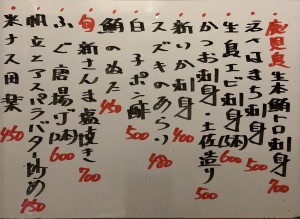 鹿児島 生本鮪トロ刺身 700
えんはまち刺身 500
生島エビ刺身(5本) 600
かつお刺身・土佐造り 500
新いか刺身 400
スズキのあらい 480
白子ポン酢 500
鮪のぬた 450
旬 新さんま塩焼き 700
ふぐ唐揚げ(5本) 600
帆立とアスパラバター炒め 450
米ナス田楽 450